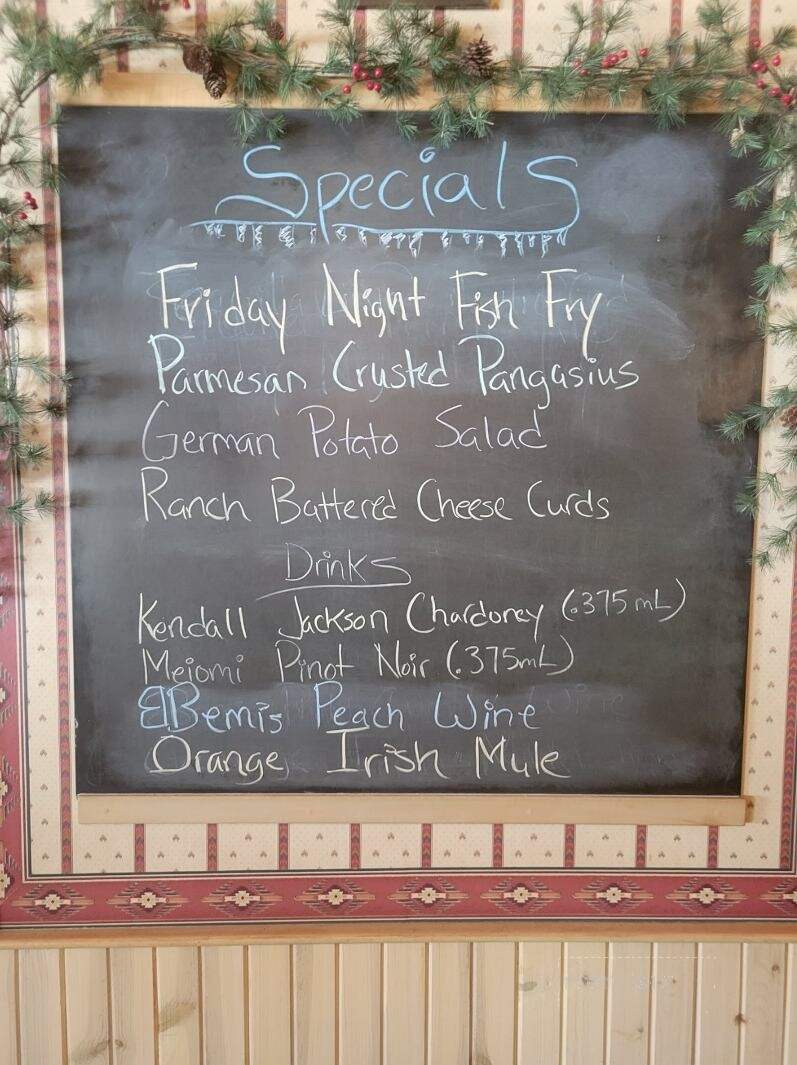 Specials
Friday Night Fish Fry
Parmesan Crusted Pangasius
German Potato Salad
Ranch Battered Cheese Curds
Drinks
Kendall Jackson Chardoney (.375 mL)
Meiomi Pinot Noir (.375mL)
Bemis Peach Wine
Orange Irish Mule